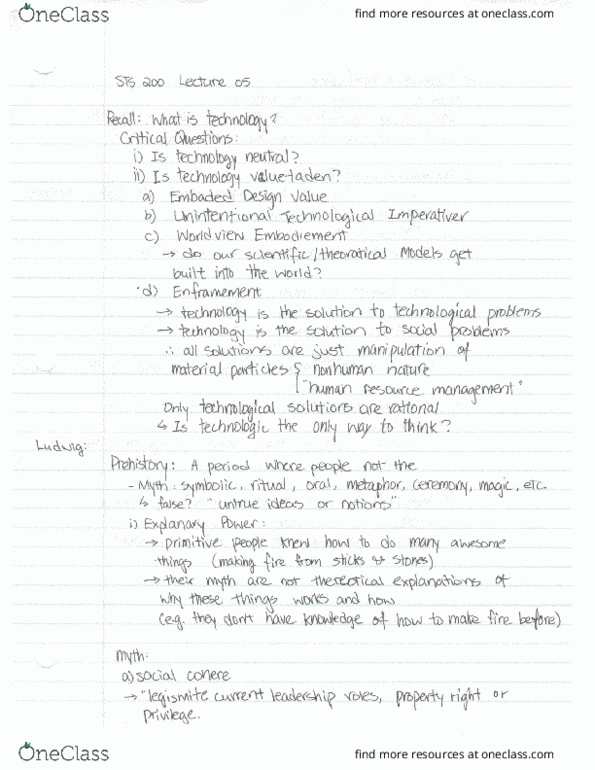 OneClass
find more resources at oneclass.com
STS 200 Lecture 05
Recall: What is technology?
Critical Questions:
i) Is technology neutral?
ii) Is technology value-laden?
a) Embaded Design Value
b) Unintentional Technological Imperativer
c) Worldview Embodiement
→ do our scientific/theoratical Models get
built into the world?
d) Enframement
→ technology is the solution to technological problems
→ technology is the solution to social problems
∴ all solutions are just manipulation of
material particles { nonhuman nature
"human resource management"
Only technological solutions are rational
↳ Is technologic the only way to think?
Ludwig:
Prehistory: A period where people not the
- Myth: symbolic, ritual, oral, metaphor, ceremony, magic, etc.
↳ false? "untrue ideas or notions"
i) Explanary Power:
→ primitive people knew how to do many awesome
things (making fire from sticks & stones)
→ their myth are not thereotical explanations of
why these things works and how
(e.g. they don't have knowledge of how to make fire before)
Myth:
a) social cohere
→ "legismite current leadership roles, property right or
privilege.
OneClass
find more resources at oneclass.com